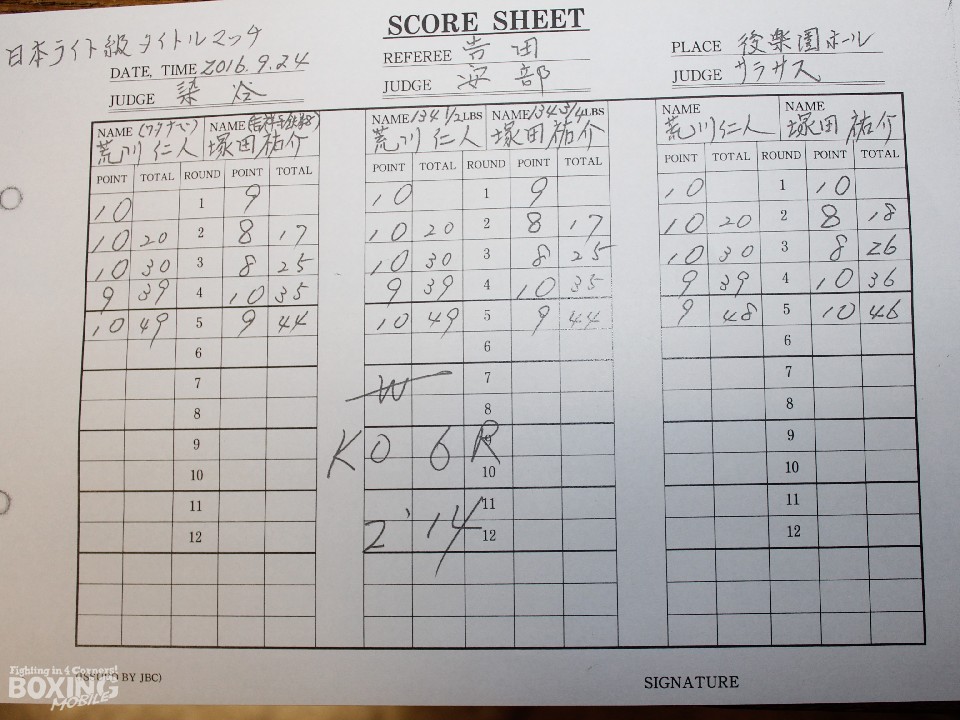 SCORE SHEET
日本ライト級タイトルマッチ
DATE, TIME 2016.9.24
REFEREE 吉田
PLACE 後楽園ホール
JUDGE 染谷
JUDGE 安部
JUDGE サラサス
NAME (ワタナベ) NAME NAME 134 1/2 LBS NAME 134 3/4 LBS NAME NAME
荒川仁人 塚田祐介 荒川仁人 塚田祐介 荒川仁人 塚田祐介
POINT TOTAL ROUND POINT TOTAL POINT TOTAL ROUND POINT TOTAL POINT TOTAL ROUND POINT TOTAL
10 1 9 10 1 9 10 1 10
10 20 2 8 17 10 20 2 8 17 10 20 2 8 18
10 30 3 8 25 10 30 3 8 25 10 30 3 8 26
9 39 4 10 35 9 39 4 10 35 9 39 4 10 36
10 49 5 9 44 10 49 5 9 44 9 48 5 10 46
6 6 6
7 W 7 7
8 8 8
9 KO 6R 9 9
10 10 10
11 11 11
12 2'14 12 12
(ISSUED BY JBC)
SIGNATURE
Fighting in 4 Corners!
BOXING
MOBILE